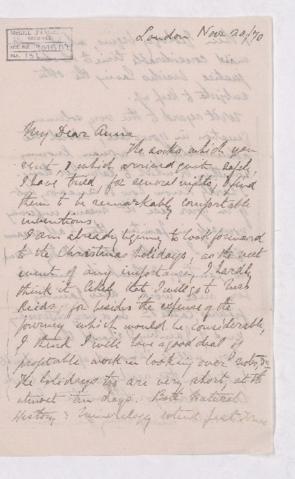 London Nov. 20/70
My Dear Anna
The socks which you
sent, & which arrived quite safely,
I have tried for several nights, & find
them to be remarkably comfortable
inventions.
I am already beginning to look forward
to the Christmas holidays, as the next
event of any importance, I hardly
think it likely that I will go to
for besides the expense of the
journey which would be considerable,
I think I will have a good deal of
profitable work in looking over notes &c
The holidays too are very short, at the
utmost ten days. Both Natural
History & Mineralogy